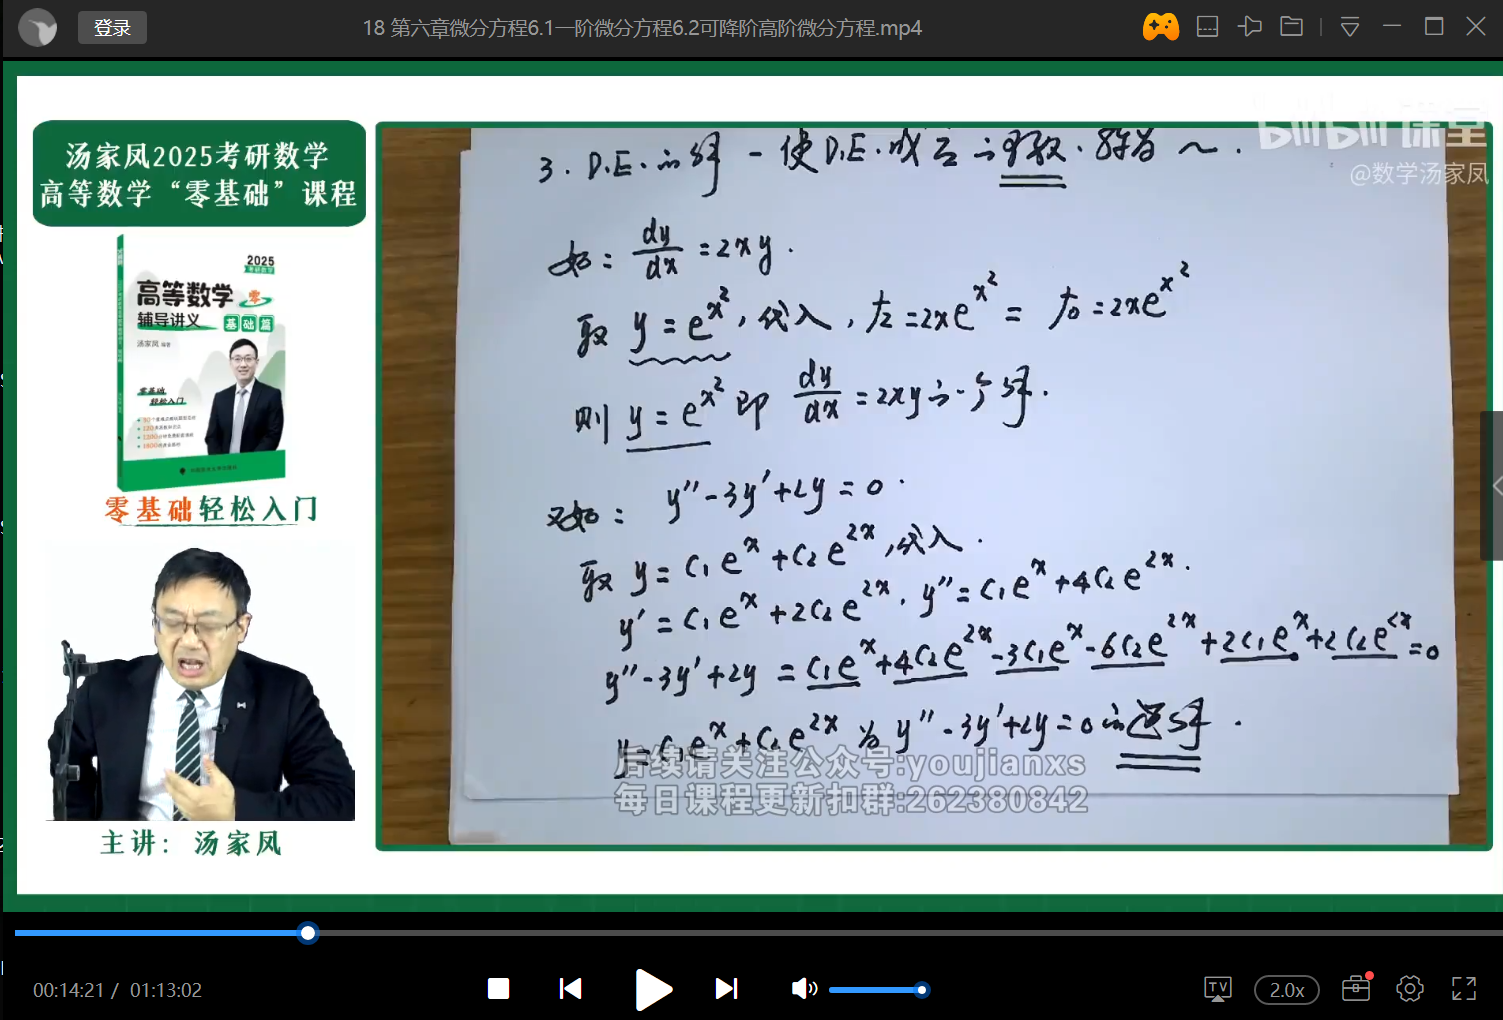 登录
18 第六章微分方程6.1一阶微分方程6.2可降阶高阶微分方程.mp4
汤家凤2025考研数学
高等数学“零基础”课程
2025
考研数学
高等数学 零
辅导讲义 基础篇
汤家凤 编著
零基础
轻松入门
零基础轻松入门
主讲：汤家凤
bilibili课堂
@数学汤家凤
3. D.E.的解 - 使D.E.成立的函数.称为 ~.
如: dy/dx = 2xy.
取 y = e^{x^2}, 代入, 左 = 2xe^{x^2} = 右 = 2xe^{x^2}
则 y = e^{x^2} 即 dy/dx = 2xy的一个解.
又如: y'' - 3y' + 2y = 0.
取 y = C₁e^x + C₂e^{2x}, 代入.
y' = C₁e^x + 2C₂e^{2x}. y'' = C₁e^x + 4C₂e^{2x}.
y'' - 3y' + 2y = C₁e^x + 4C₂e^{2x} - 3C₁e^x - 6C₂e^{2x} + 2C₁e^x + 2C₂e^{2x} = 0
y = C₁e^x + C₂e^{2x} 为 y'' - 3y' + 2y = 0 的通解.
后续请关注公众号:youjianxs
每日课程更新扣群:262380842
00:14:21 / 01:13:02
TV
2.0x